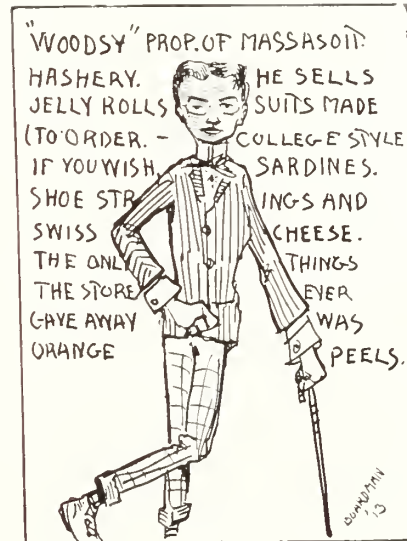 "WOODSY" PROP. OF MASSASOIT
HASHERY. HE SELLS
JELLY ROLLS SUITS MADE
(TO ORDER. - COLLEGE STYLE
IF YOU WISH, SARDINES.
SHOE STR INGS AND
SWISS CHEESE.
THE ONLY THINGS
THE STORE EVER
GAVE AWAY WAS
ORANGE PEELS.
BOARDMAN
'13